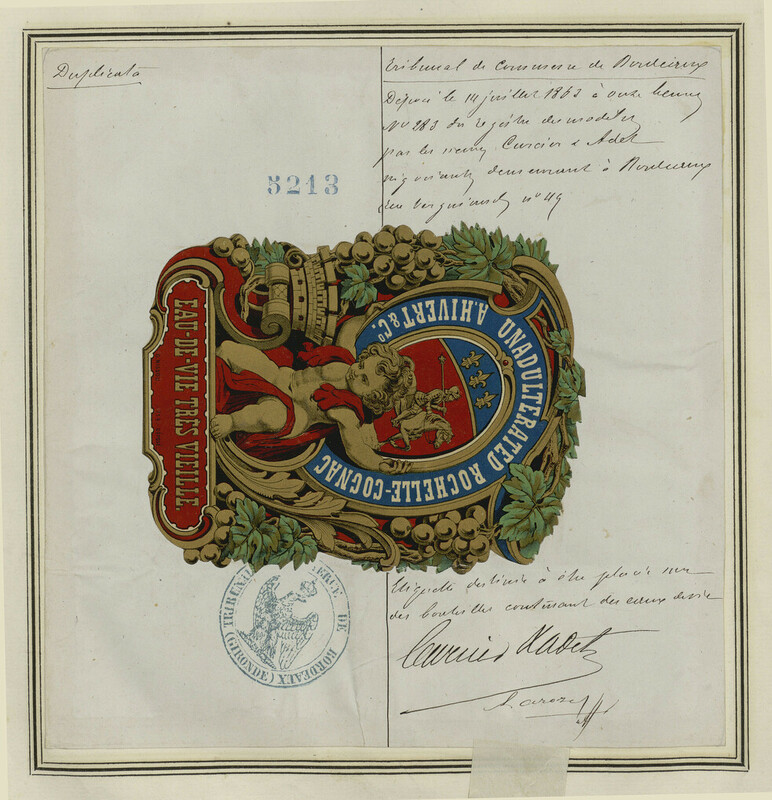 Duplicata
Tribunal de Commerce de Bordeaux
Déposé le 14 juillet 1863 à onze heures
No 283 du registre des modèles
par les sieurs Cursier & Adet
négociants demeurant à Bordeaux
rue Vergniaud no 49
5213
A.HIVERT & Co.
UNADULTERATED ROCHELLE-COGNAC
EAU-DE-VIE TRÈS VIEILLE.
Etiquette destinée à être placée sur
des bouteilles contenant des eaux de vie
TRIBUNAL DE COMMERCE DE BORDEAUX (GIRONDE)